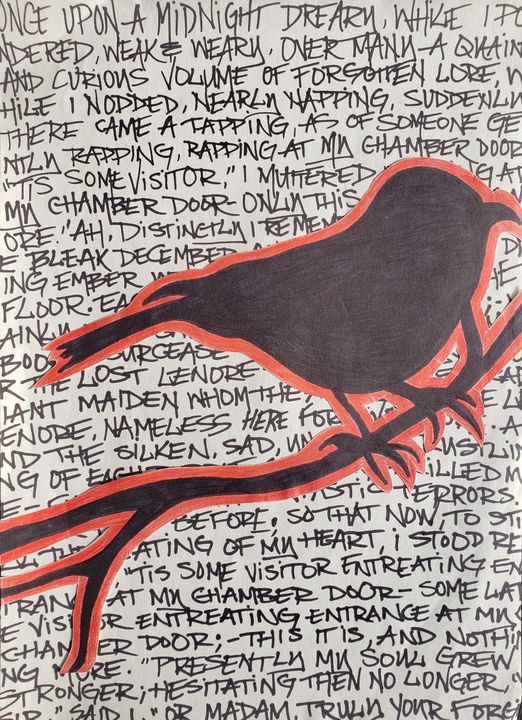 ONCE UPON A MIDNIGHT DREARY, WHILE I PO
NDERED, WEAK & WEARY, OVER MANY A QUAIN
AND CURIOUS VOLUME OF FORGOTTEN LORE, W
HILE I NODDED, NEARLY NAPPING, SUDDENLY
THERE CAME A TAPPING, AS OF SOMEONE GE
NTLY RAPPING, RAPPING AT MY CHAMBER DOOR
"'TIS SOME VISITOR," I MUTTERED AT
MY CHAMBER DOOR-ONLY THIS
ORE." AH, DISTINCTLY I REMEM
E BLEAK DECEMBER
ING EMBER W HE
FLOOR. EA
AINLY
BOO SURCEASE
R THE LOST LENORE
IANT MAIDEN WHOM THE
ENORE, NAMELESS HERE FOR
ND THE SILKEN, SAD, UN USTLIN
NG OF EACH ILLED M
TASTIC TERRORS
BEFORE; SO THAT NOW, TO STI
ATING OF MY HEART, I STOOD RE
"'TIS SOME VISITOR ENTREATING EN
TRAN AT MY CHAMBER DOOR- SOME LAT
E VISITOR ENTREATING ENTRANCE AT MY
CHAMBER DOOR;-THIS IT IS, AND NOTHI
NG MORE." PRESENTLY MY SOUL GREW
STRONGER; HESITATING THEN NO LONGER, "
SIR," SAID I, "OR MADAM, TRULY YOUR FORGI